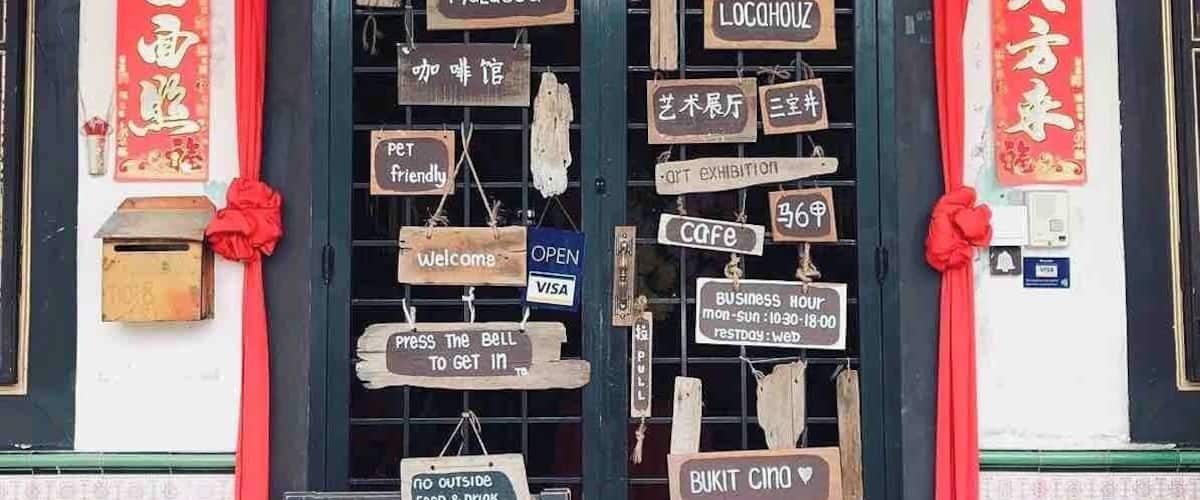 面
照
咖啡馆
PET
friendly
welcome
OPEN
VISA
PRESS THE BELL
TO GET IN
NO OUTSIDE
LOCAHOUZ
艺术展厅
三宝井
art EXHIBITION
马6甲
cafe
BUSINESS HOUR
mon-sun:10:30-18:00
RESTDAY:WED
拉
PULL
BUKIT CINA
方
来
VISA